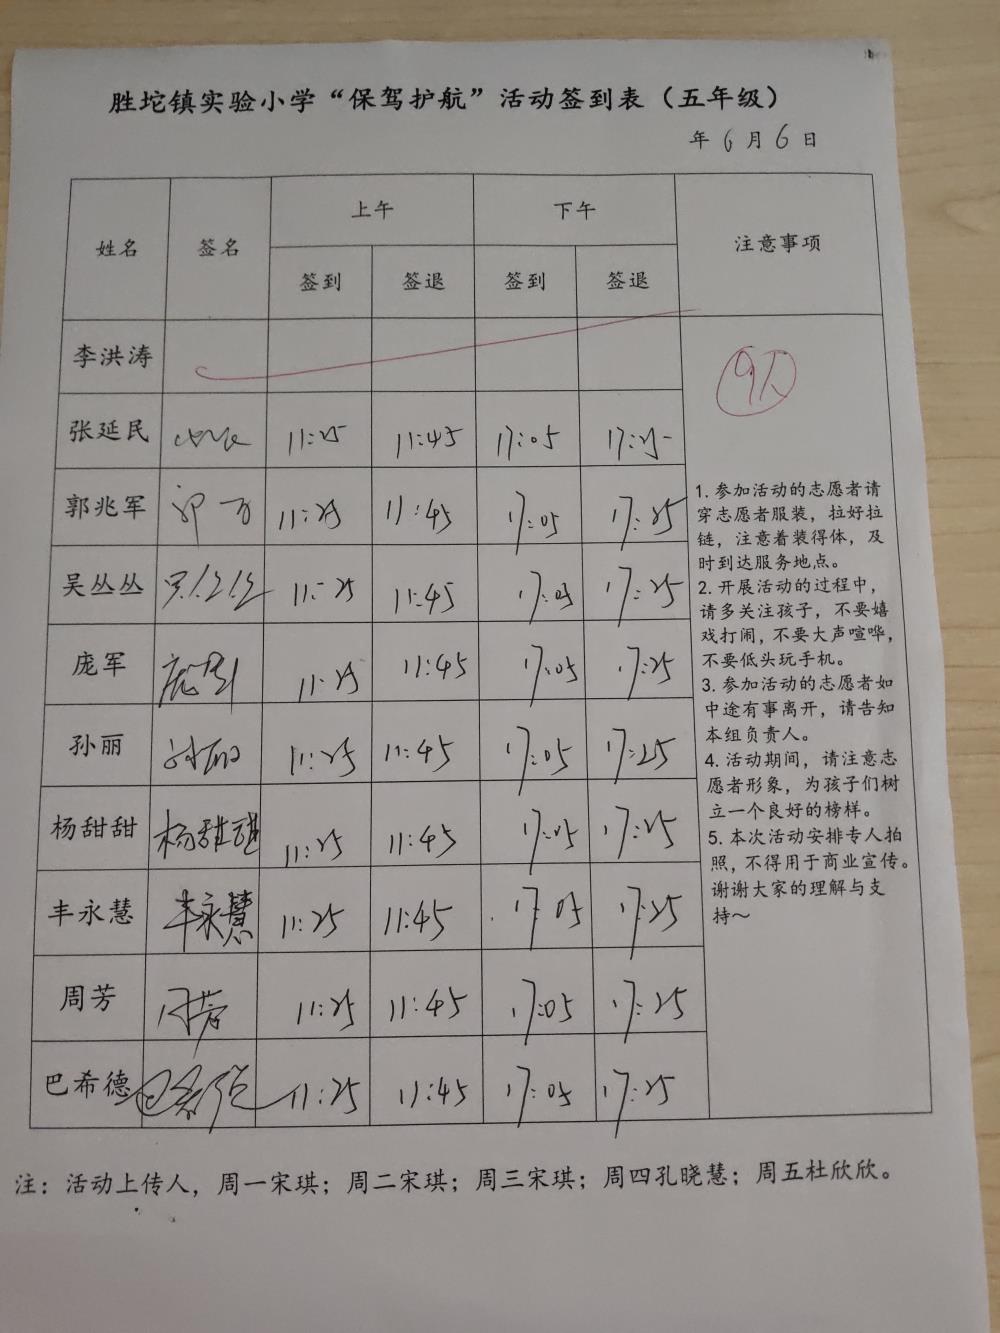 胜坨镇实验小学“保驾护航”活动签到表（五年级）
年 6 月 6 日
姓名 签名 上午 下午 注意事项
签到 签退 签到 签退
李洪涛
9人
张延民 11:25 11:45 17:05 17:25
郭兆军 11:25 11:45 17:05 17:25
吴丛丛 吴丛丛 11:25 11:45 17:05 17:25
庞军 庞军 11:25 11:45 17:05 17:25
孙丽 孙丽 11:25 11:45 17:05 17:25
杨甜甜 杨甜甜 11:25 17:05 17:25
丰永慧 丰永慧 11:25 11:45 17:05 17:25
周芳 周芳 11:25 11:45 17:05 17:25
巴希德 巴希德 11:25 11:45 17:05 17:25
1. 参加活动的志愿者请
穿志愿者服装，拉好拉
链，注意着装得体，及
时到达服务地点。
2. 开展活动的过程中，
请多关注孩子，不要嬉
戏打闹，不要大声喧哗，
不要低头玩手机。
3. 参加活动的志愿者如
中途有事离开，请告知
本组负责人。
4. 活动期间，请注意志
愿者形象，为孩子们树
立一个良好的榜样。
5. 本次活动安排专人拍
照，不得用于商业宣传。
谢谢大家的理解与支
持～
注：活动上传人，周一宋琪；周二宋琪；周三宋琪；周四孔晓慧；周五杜欣欣。